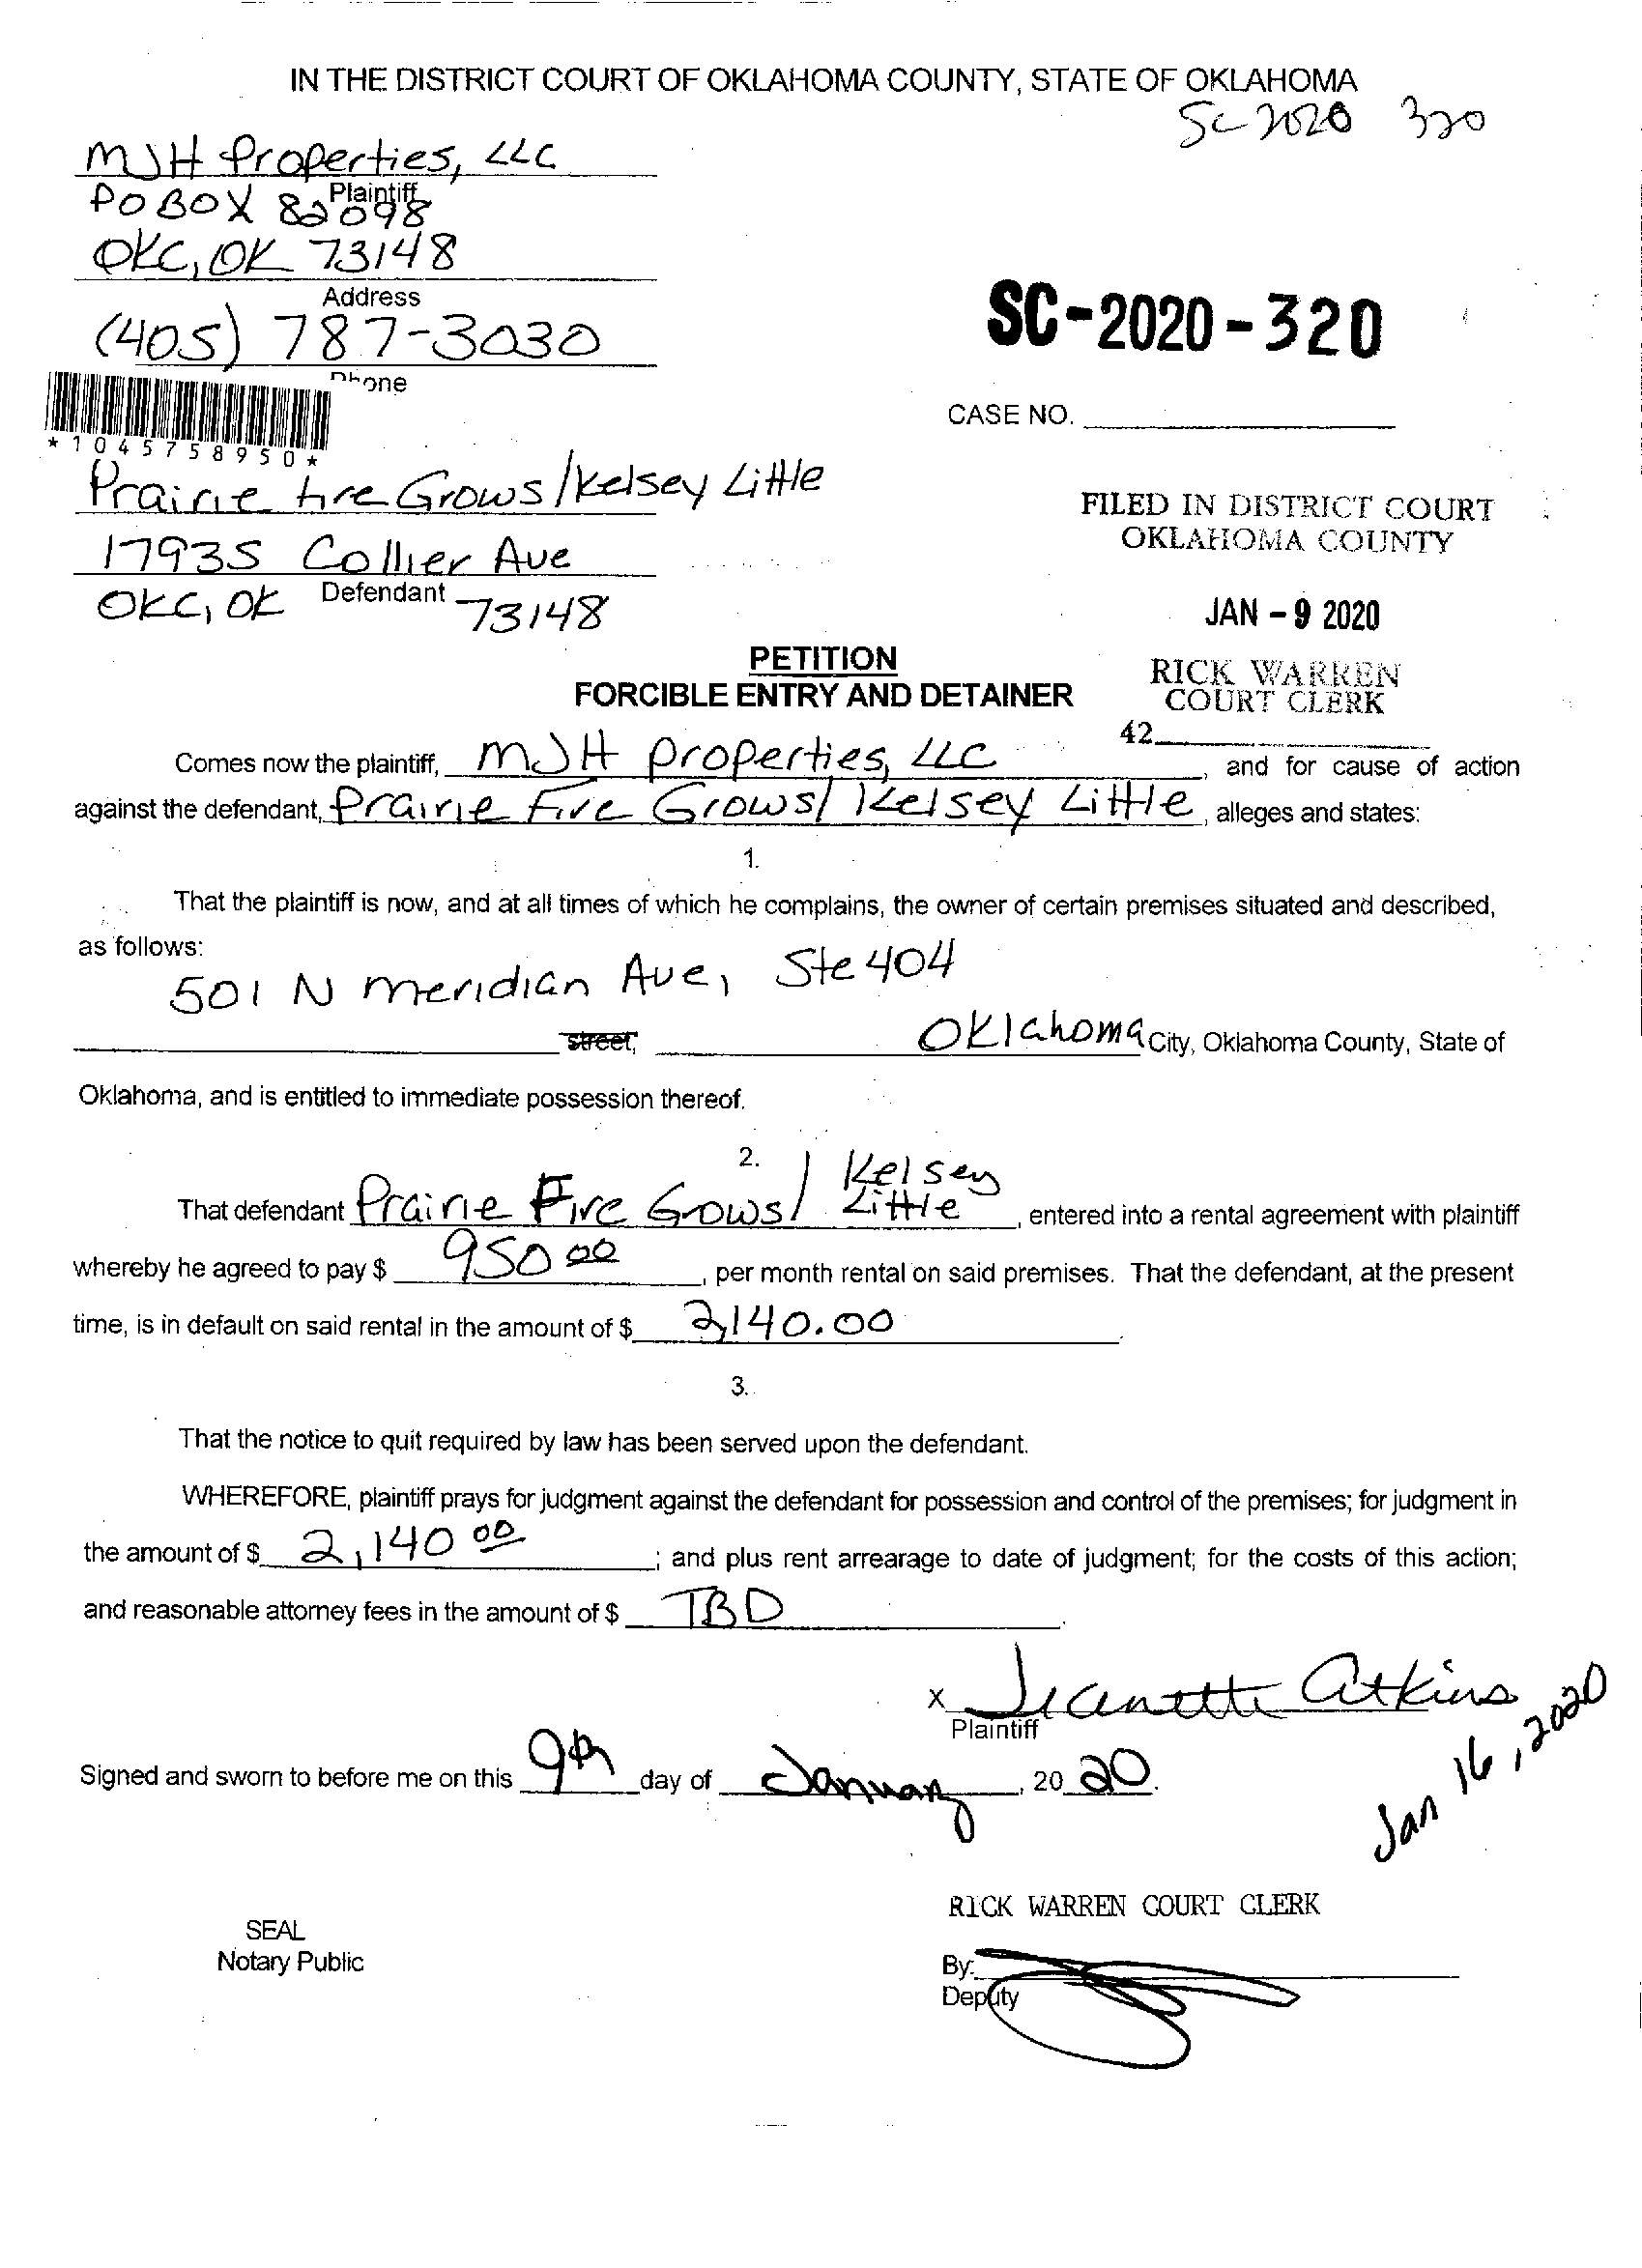 IN THE DISTRICT COURT OF OKLAHOMA COUNTY, STATE OF OKLAHOMA
SC-2020 320
MJH Properties, LLC
Plaintiff
PO BOX 82098
OKC, OK 73148
Address
(405) 787-3030
Phone
SC-2020-320
CASE NO.
*1045758950*
Prairie Fire Grows/Kelsey Little
17935 Collier Ave
Defendant
OKC, OK 73148
FILED IN DISTRICT COURT
OKLAHOMA COUNTY
JAN - 9 2020
RICK WARREN
COURT CLERK
42
PETITION
FORCIBLE ENTRY AND DETAINER
Comes now the plaintiff, MJH Properties, LLC, and for cause of action
against the defendant, Prairie Fire Grows/ Kelsey Little, alleges and states:
1.
That the plaintiff is now, and at all times of which he complains, the owner of certain premises situated and described,
as follows:
501 N Meridian Ave, Ste 404
street, Oklahoma City, Oklahoma County, State of
Oklahoma, and is entitled to immediate possession thereof.
2.
That defendant Prairie Fire Grows/ Kelsey Little, entered into a rental agreement with plaintiff
whereby he agreed to pay $ 950 00, per month rental on said premises. That the defendant, at the present
time, is in default on said rental in the amount of $ 2,140.00.
3.
That the notice to quit required by law has been served upon the defendant.
WHEREFORE, plaintiff prays for judgment against the defendant for possession and control of the premises; for judgment in
the amount of $ 2,140 00; and plus rent arrearage to date of judgment; for the costs of this action;
and reasonable attorney fees in the amount of $ TBD.
X Jeanette Atkins
Plaintiff
Jan 16, 2020
Signed and sworn to before me on this 9th day of January, 20 20.
RICK WARREN COURT CLERK
SEAL
Notary Public
By:
Deputy